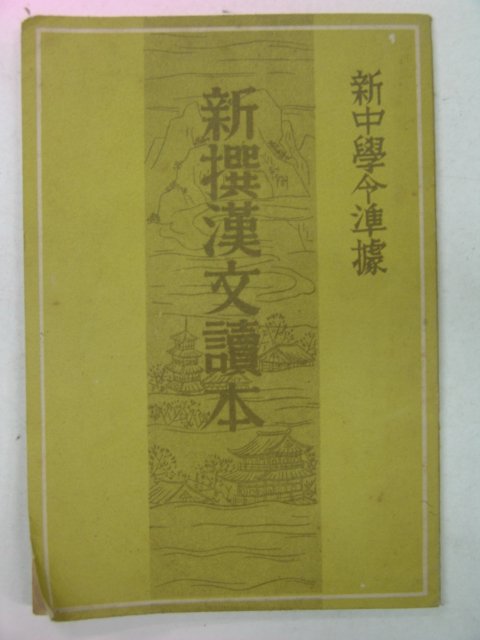 新中學令準據
新撰漢文讀本